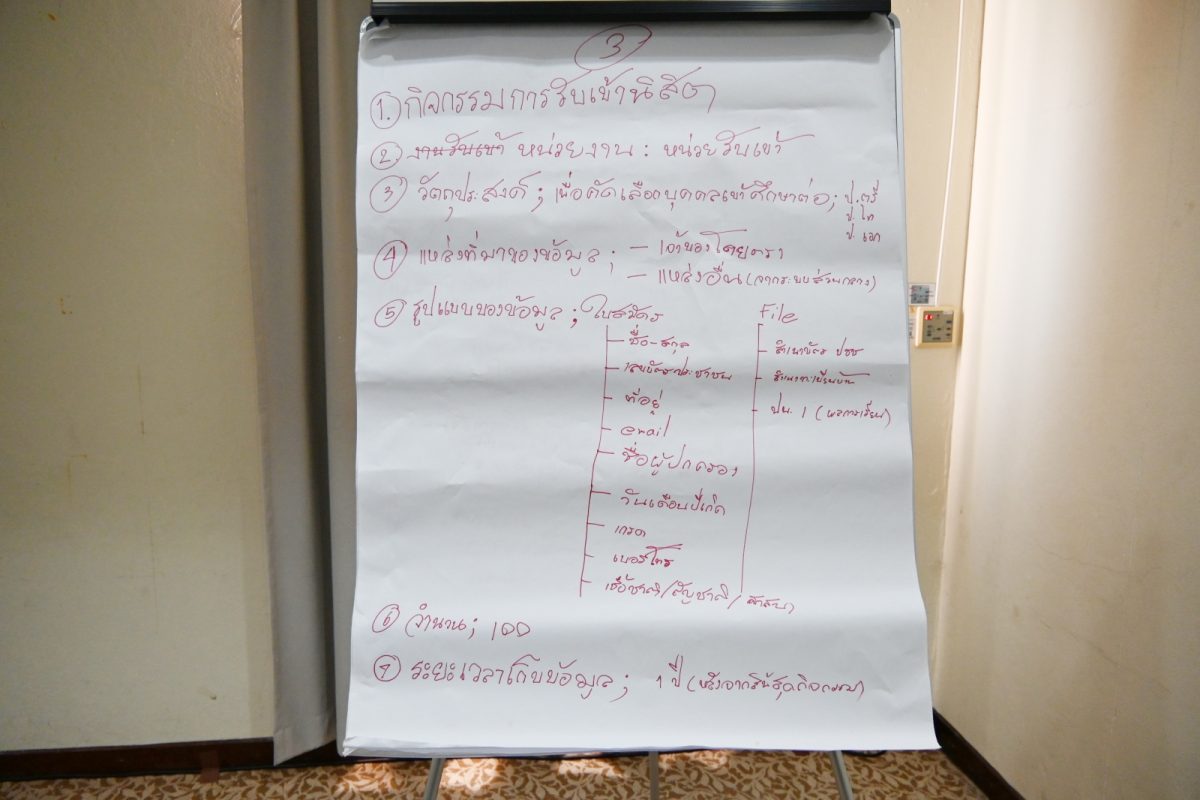 3
1. กิจกรรมการรับเข้านิสิต
2. งานรับเข้า หน่วยงาน : หน่วยรับเข้า
3 วัตถุประสงค์ ; เพื่อคัดเลือกบุคคลเข้าศึกษาต่อ ; ป.ตรี
ป.โท
ป.เอก
4 แหล่งที่มาของข้อมูล ; - เจ้าของโดยตรง
- แหล่งอื่น (จากระบบส่วนกลาง)
5 รูปแบบของข้อมูล ; ใบสมัคร
ชื่อ-สกุล
เลขบัตรประชาชน
ที่อยู่
email
ชื่อผู้ปกครอง
วันเดือนปีเกิด
เกรด
เบอร์โทร
เชื้อชาติ/สัญชาติ/ศาสนา
File
สำเนาบัตร ปชช
สำเนาทะเบียนบ้าน
ปพ. 1 (ผลการเรียน)
6 จำนวน ; 100
7 ระยะเวลาเก็บข้อมูล ; 1 ปี (หลังจากสิ้นสุดกิจกรรม)